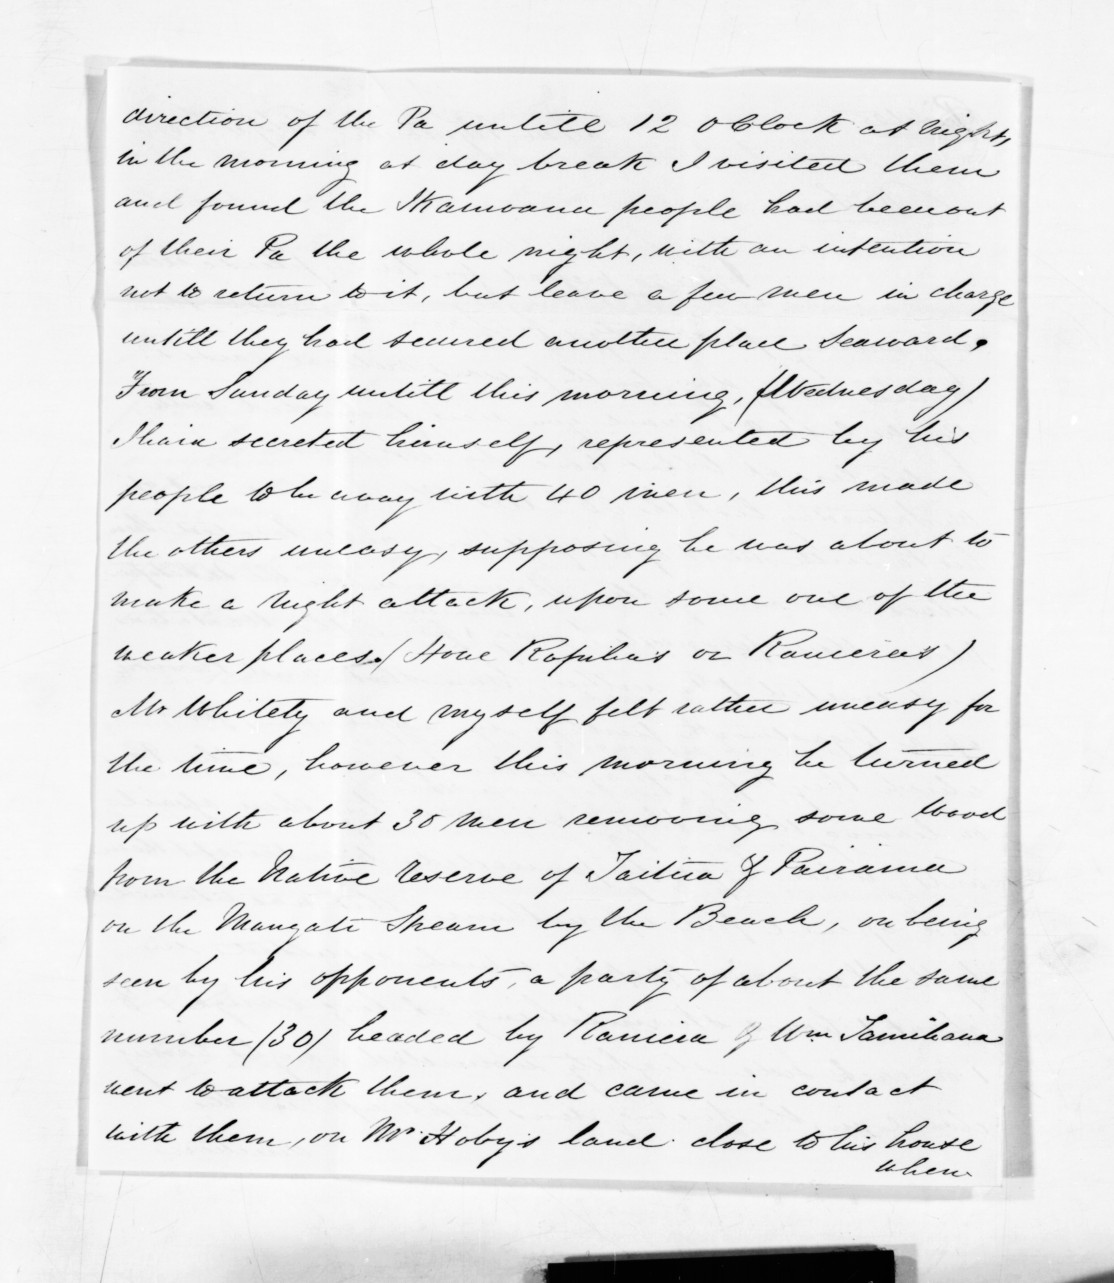 direction of the Pa untill 12 oClock at night,
in the morning at day break I visited them
and found the Ikamoana people had been out
of their Pa the whole night, with an intention
not to return to it, but leave a few men in charge
untill they had secured another place seaward.
From Sunday untill this morning, (Wednesday)
Ihaia secreted himself, represented by his
people to be away with 40 men, this made
the others uneasy, supposing he was about to
make a night attack, upon some one of the
weaker places. (Hone Ropiha's or Raniera's)
Mr Whitely and myself felt rather uneasy for
the time, however this morning he turned
up with about 30 men removing some wood
from the Native reserve of Taitua & Pairama
on the Mangati Stream by the Beach, on being
seen by his opponents, a party of about the same
number (30) headed by Raniera & Wm Tamihana
went to attack them, and came in contact
with them, on Mr Hoby's land close to his house
when